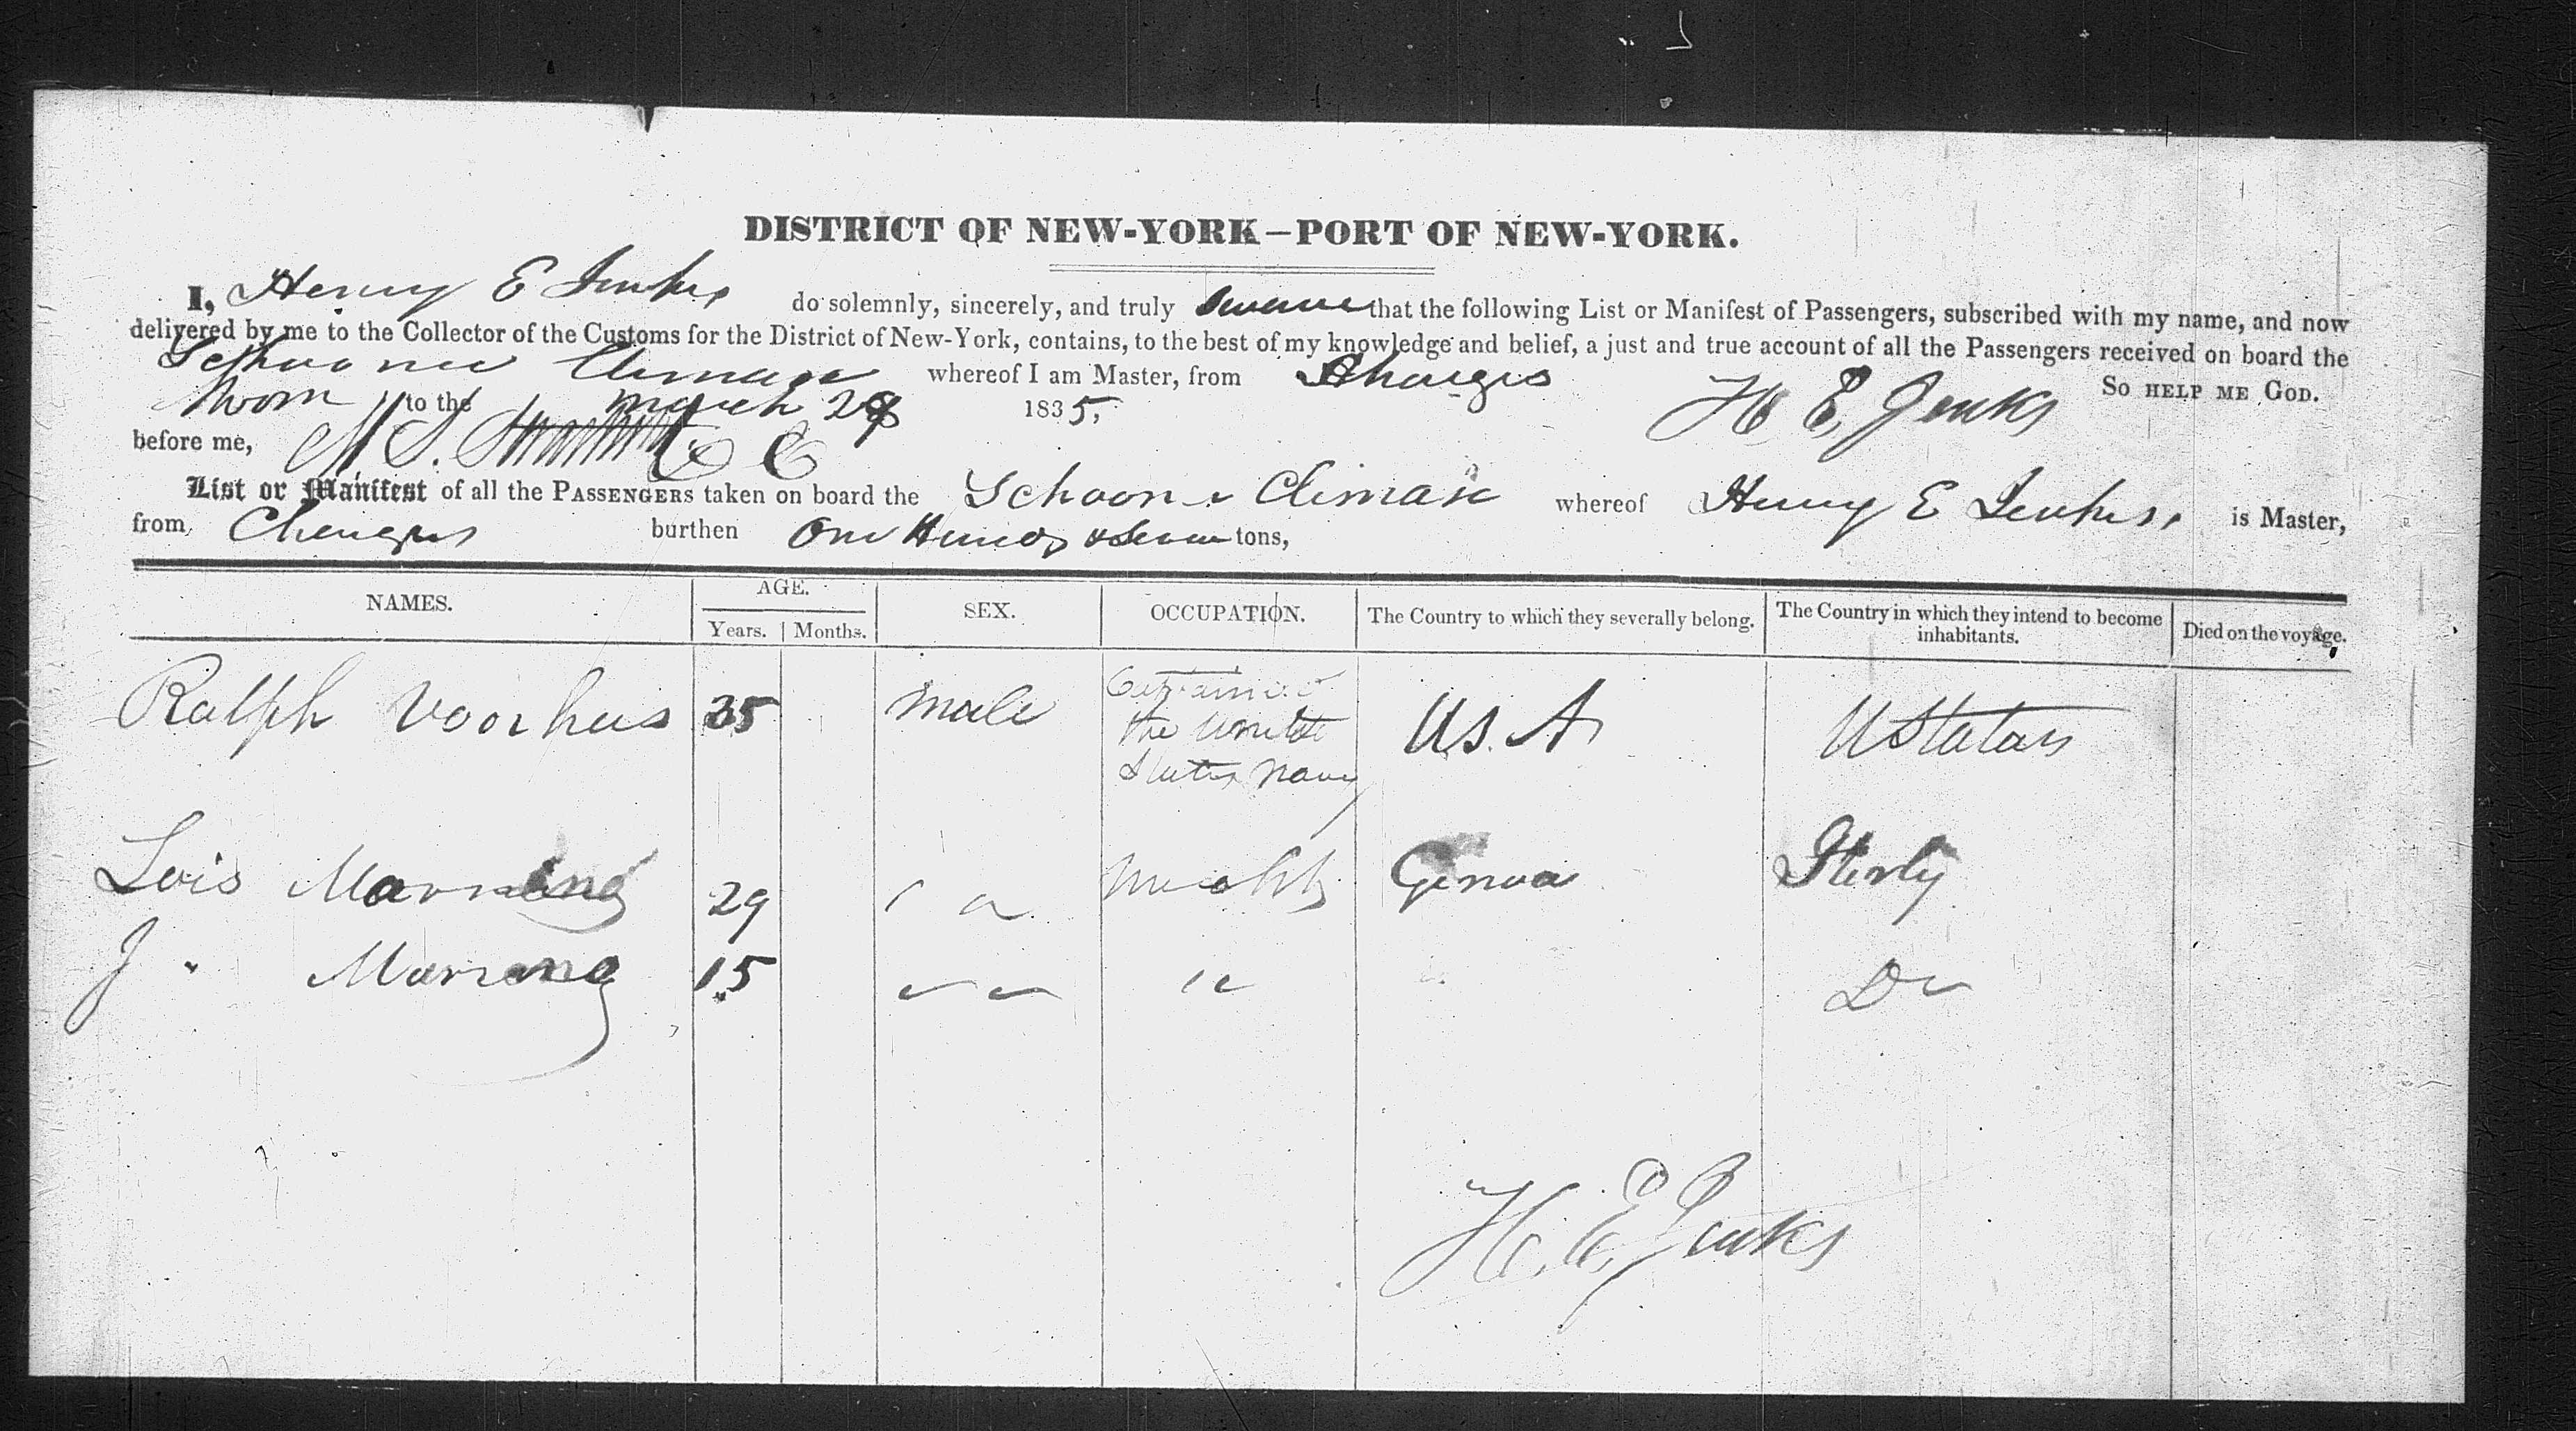 DISTRICT OF NEW-YORK—PORT OF NEW-YORK.
I, Henry E Jenks do solemnly, sincerely, and truly swear that the following List or Manifest of Passengers, subscribed with my name, and now
delivered by me to the Collector of the Customs for the District of New-York, contains, to the best of my knowledge and belief, a just and true account of all the Passengers received on board the
Schooner Climax whereof I am Master, from Chargis So HELP ME GOD.
Sworn to the March 28 1835, H E Jenks
before me,
List or Manifest of all the PASSENGERS taken on board the Schooner Climax whereof Henry E Jenks is Master,
from burthen One Hund & Seven tons,
NAMES. AGE. SEX. OCCUPATION. The Country to which they severally belong. The Country in which they intend to become inhabitants. Died on the voyage.
Years. Months.
Ralph Voorhees 35 male Captain of the United States Navy US. A UStates
Lois 29 Genoa
J " 15 " " " Do
H. E. Jenks